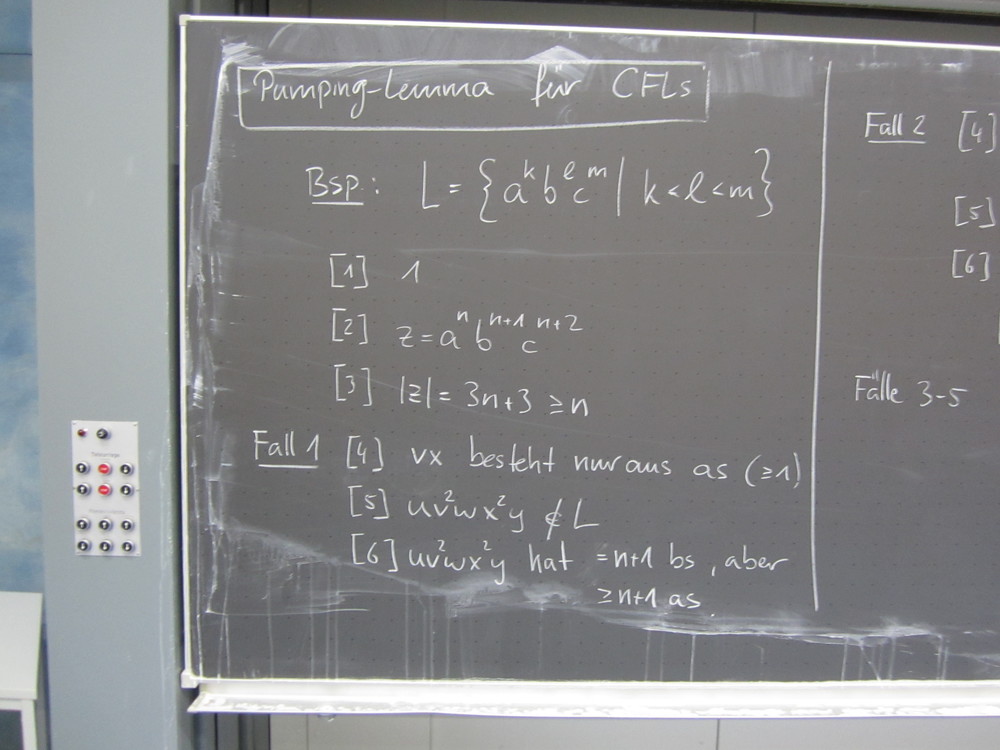 Pumping-Lemma für CFLs
Bsp: L = {a^k b^l c^m | k<l<m}
[1] 1
[2] z=a^n b^{n+1} c^{n+2}
[3] |z| = 3n+3 ≥n
Fall 1 [4] vx besteht nur aus as (≥1)
[5] uv²wx²y ∉ L
[6] uv²wx²y hat =n+1 bs, aber
≥n+1 as.
Fall 2 [4]
[5]
[6]
Fälle 3-5